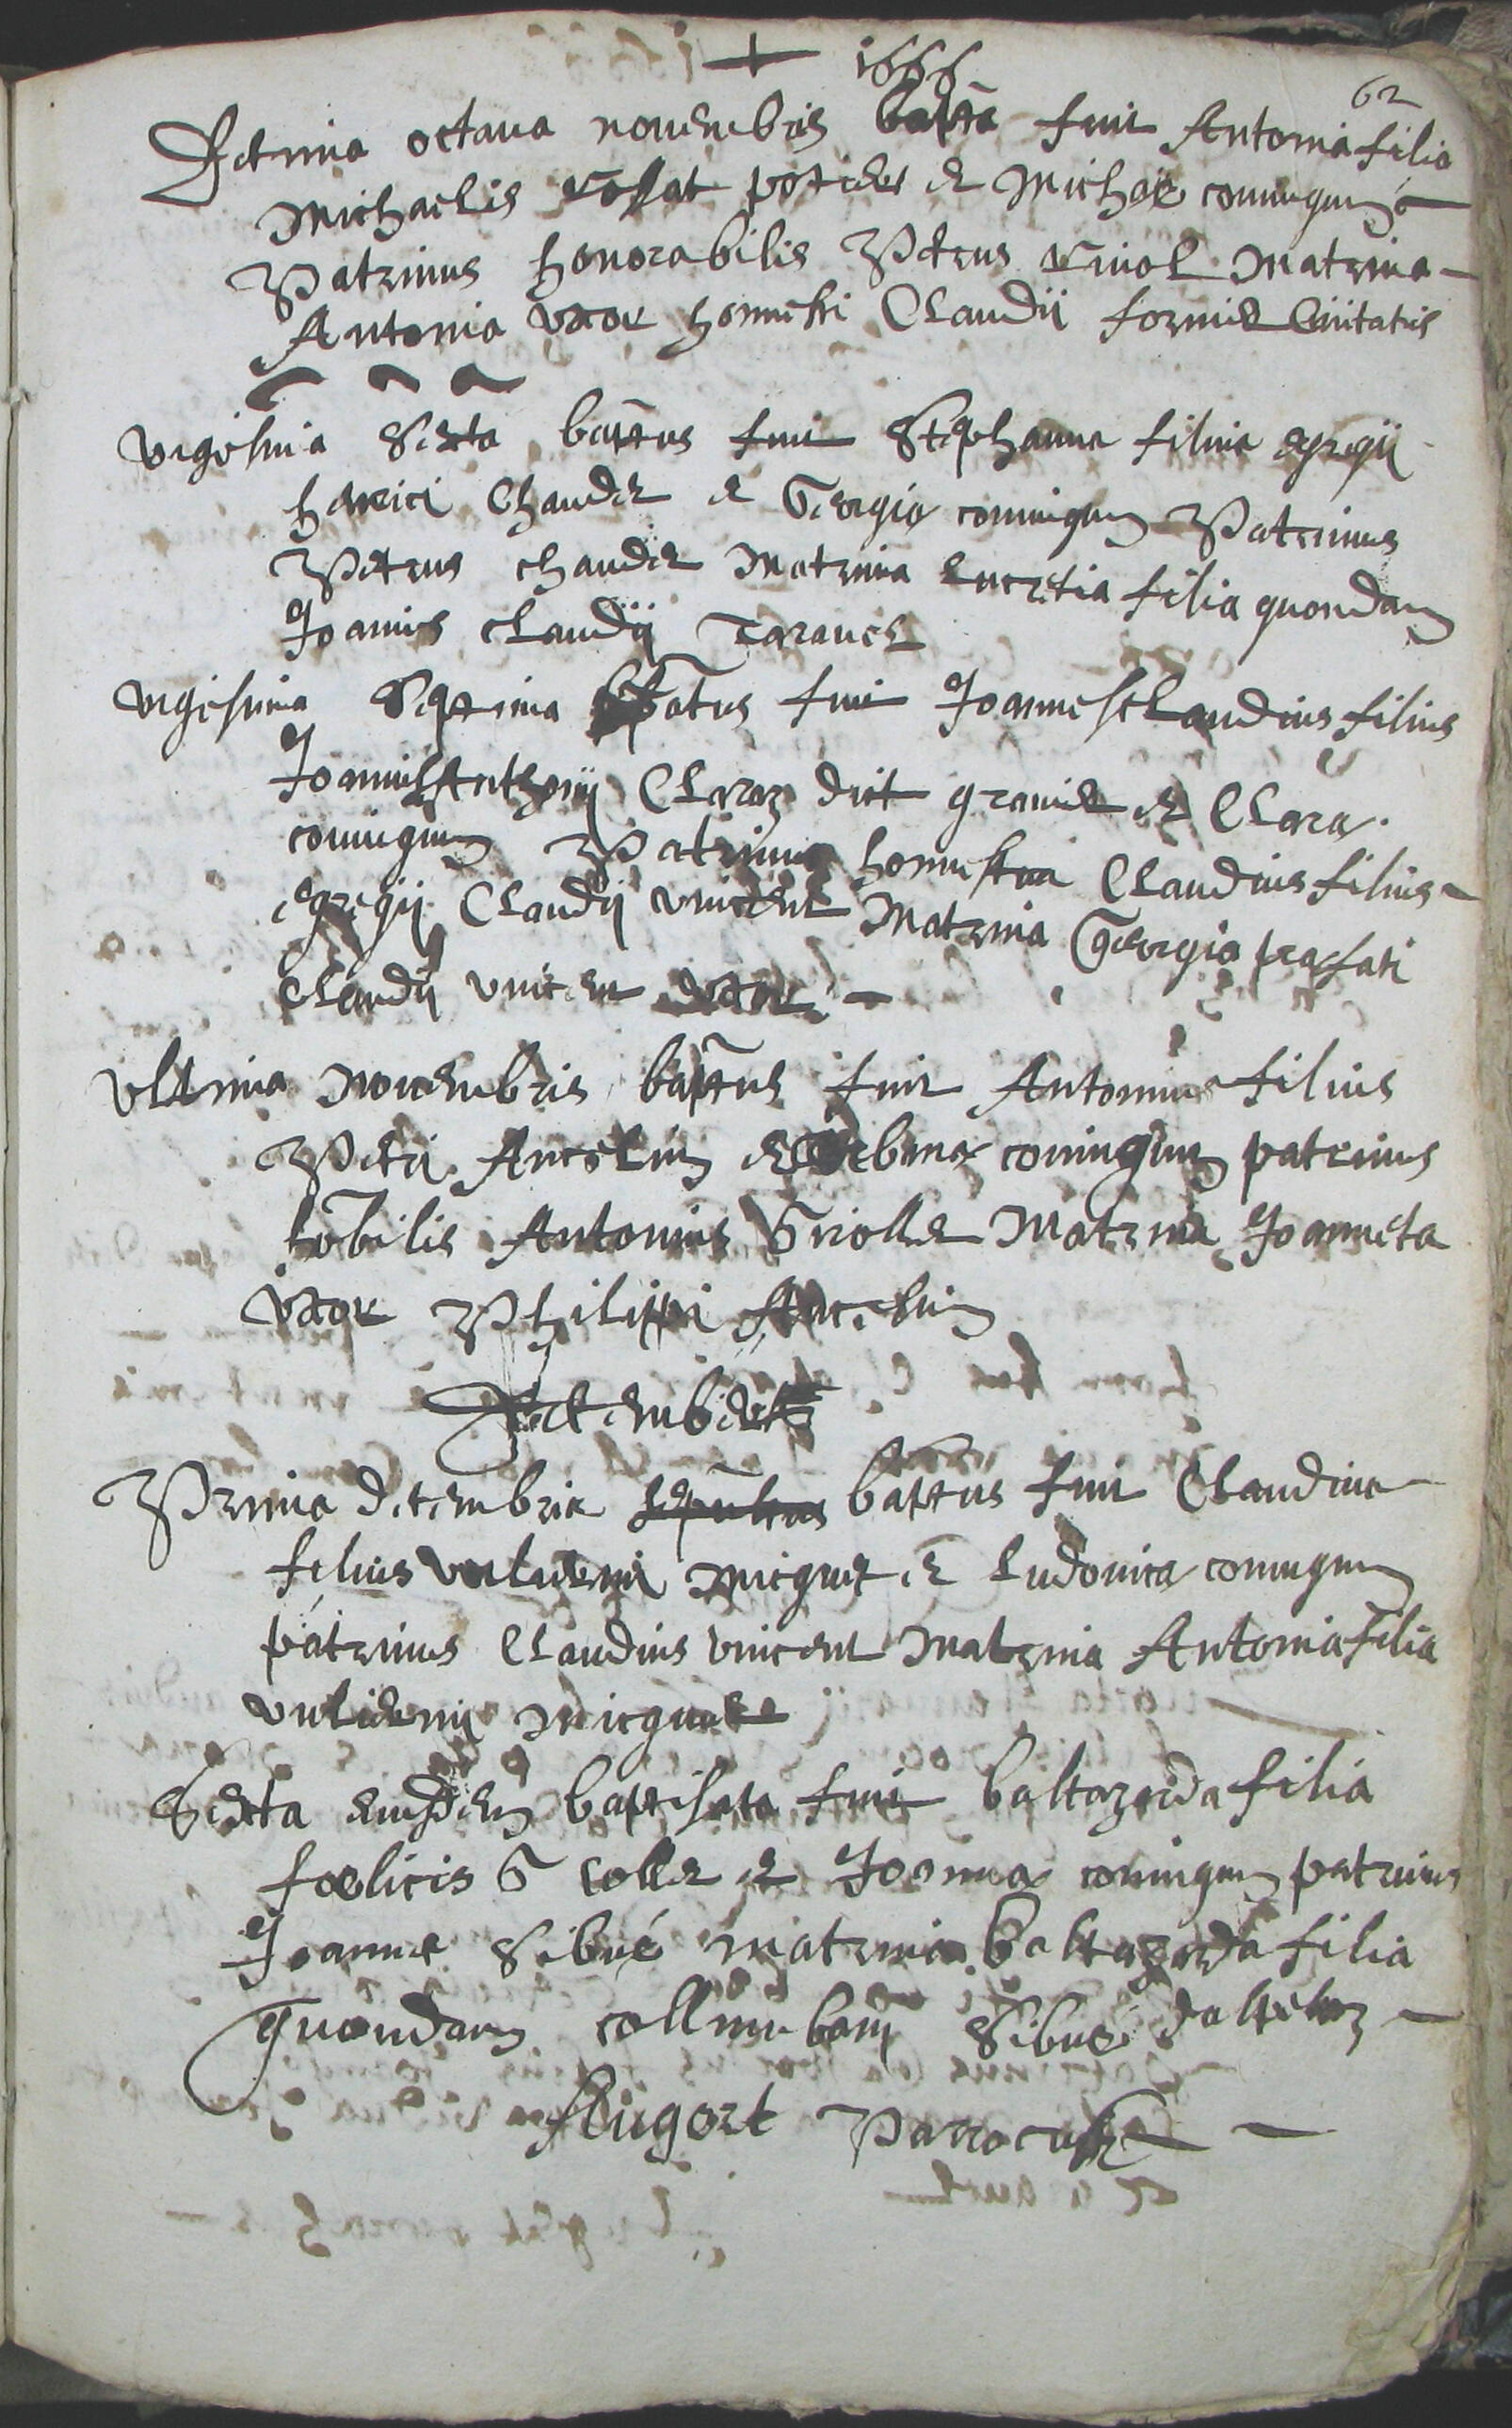 + 1666
62
Decima octava novembris bapta fuit Antonia filia
Michaelis rosat potier et Michae coniugum
Patrinus honorabilis Petrus Matrina
Antonia uxor honnesti Claudii fornier Civitatis
vigesima sexta baptus fuit Stephanus filius egregii
henrici Chaudet et Georgia coniugum Patrinus
Petrus chaudet Matrina Lucretia filia quondam
Joannis Claudii Taravel
vigesima septima bpatus fuit Joannes Claudius filius
Joannis Anthonii Claraz dict et Clara
coniugum Patrinus honnestus Claudius filius
egregii Claudii vincent Matrina Georgia prafati
Claudii vincent uxor
Ultima novembris baptus fuit Antonius filius
Petri Ancelin et coniugum patrinus
Antonius Matrina Joanneta
uxor Philippi Ancelin
Decembris
Prima decembris sepultus baptus fuit Claudius
filius et Ludovica coniugum
patrinus Claudius vincent Matrina Antonia filia
Sexta eiusdem baptisata fuit baltazarda filia
foelicis colle et Joanna coniugum patrinus
Joannes Sibué matrina baltazarda filia
quondam collumbani Sibué
parrocus